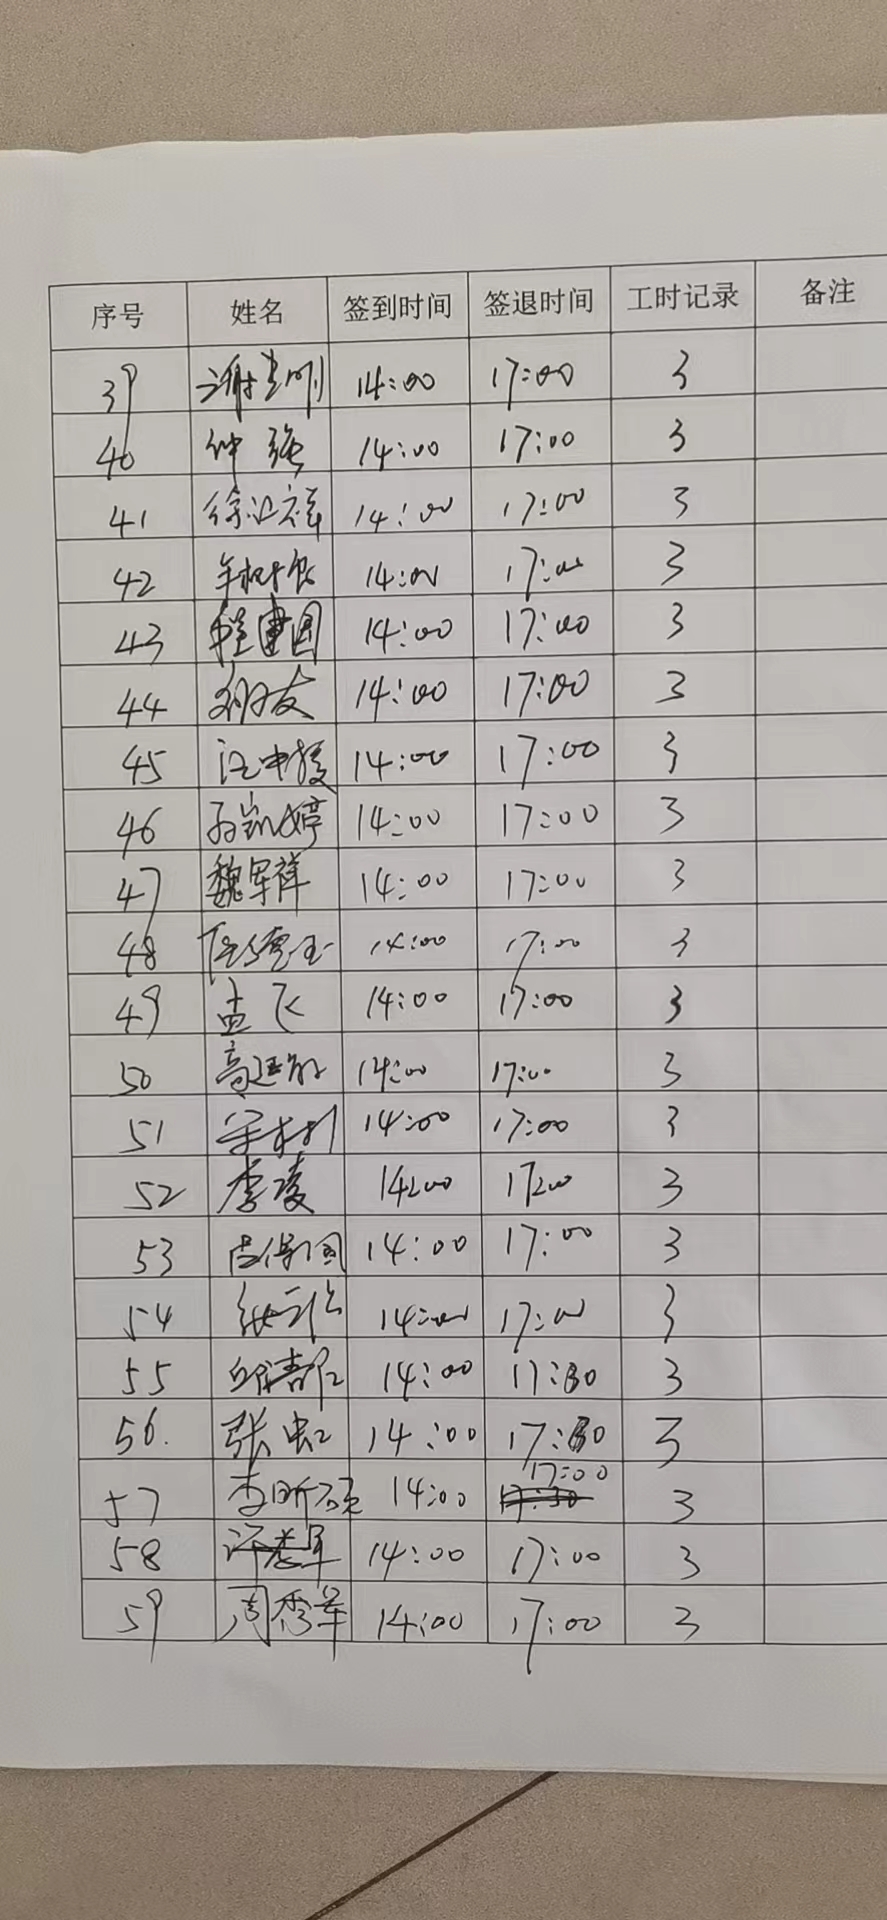 序号 姓名 签到时间 签退时间 工时记录 备注
39 谢 刚 14:00 17:00 3
40 钟强 14:00 17:00 3
41 徐 祥 14:00 17:00 3
42 14:00 17:00 3
43 程建国 14:00 17:00 3
44 友 14:00 17:00 3
45 汪中 14:00 17:00 3
46 孙凯婷 14:00 17:00 3
47 魏军祥 14:00 17:00 3
48 任德玉 14:00 17:00 3
49 孟飞 14:00 17:00 3
50 高 14:00 17:00 3
51 14:00 17:00 3
52 李凌 14:00 17:00 3
53 保国 14:00 17:00 3
54 张 14:00 17:00 3
55 14:00 17:30 3
56. 张虹 14:00 17:30 3
57 李昕硕 14:00 17:00 3
58 许 军 14:00 17:00 3
59 周秀军 14:00 17:00 3